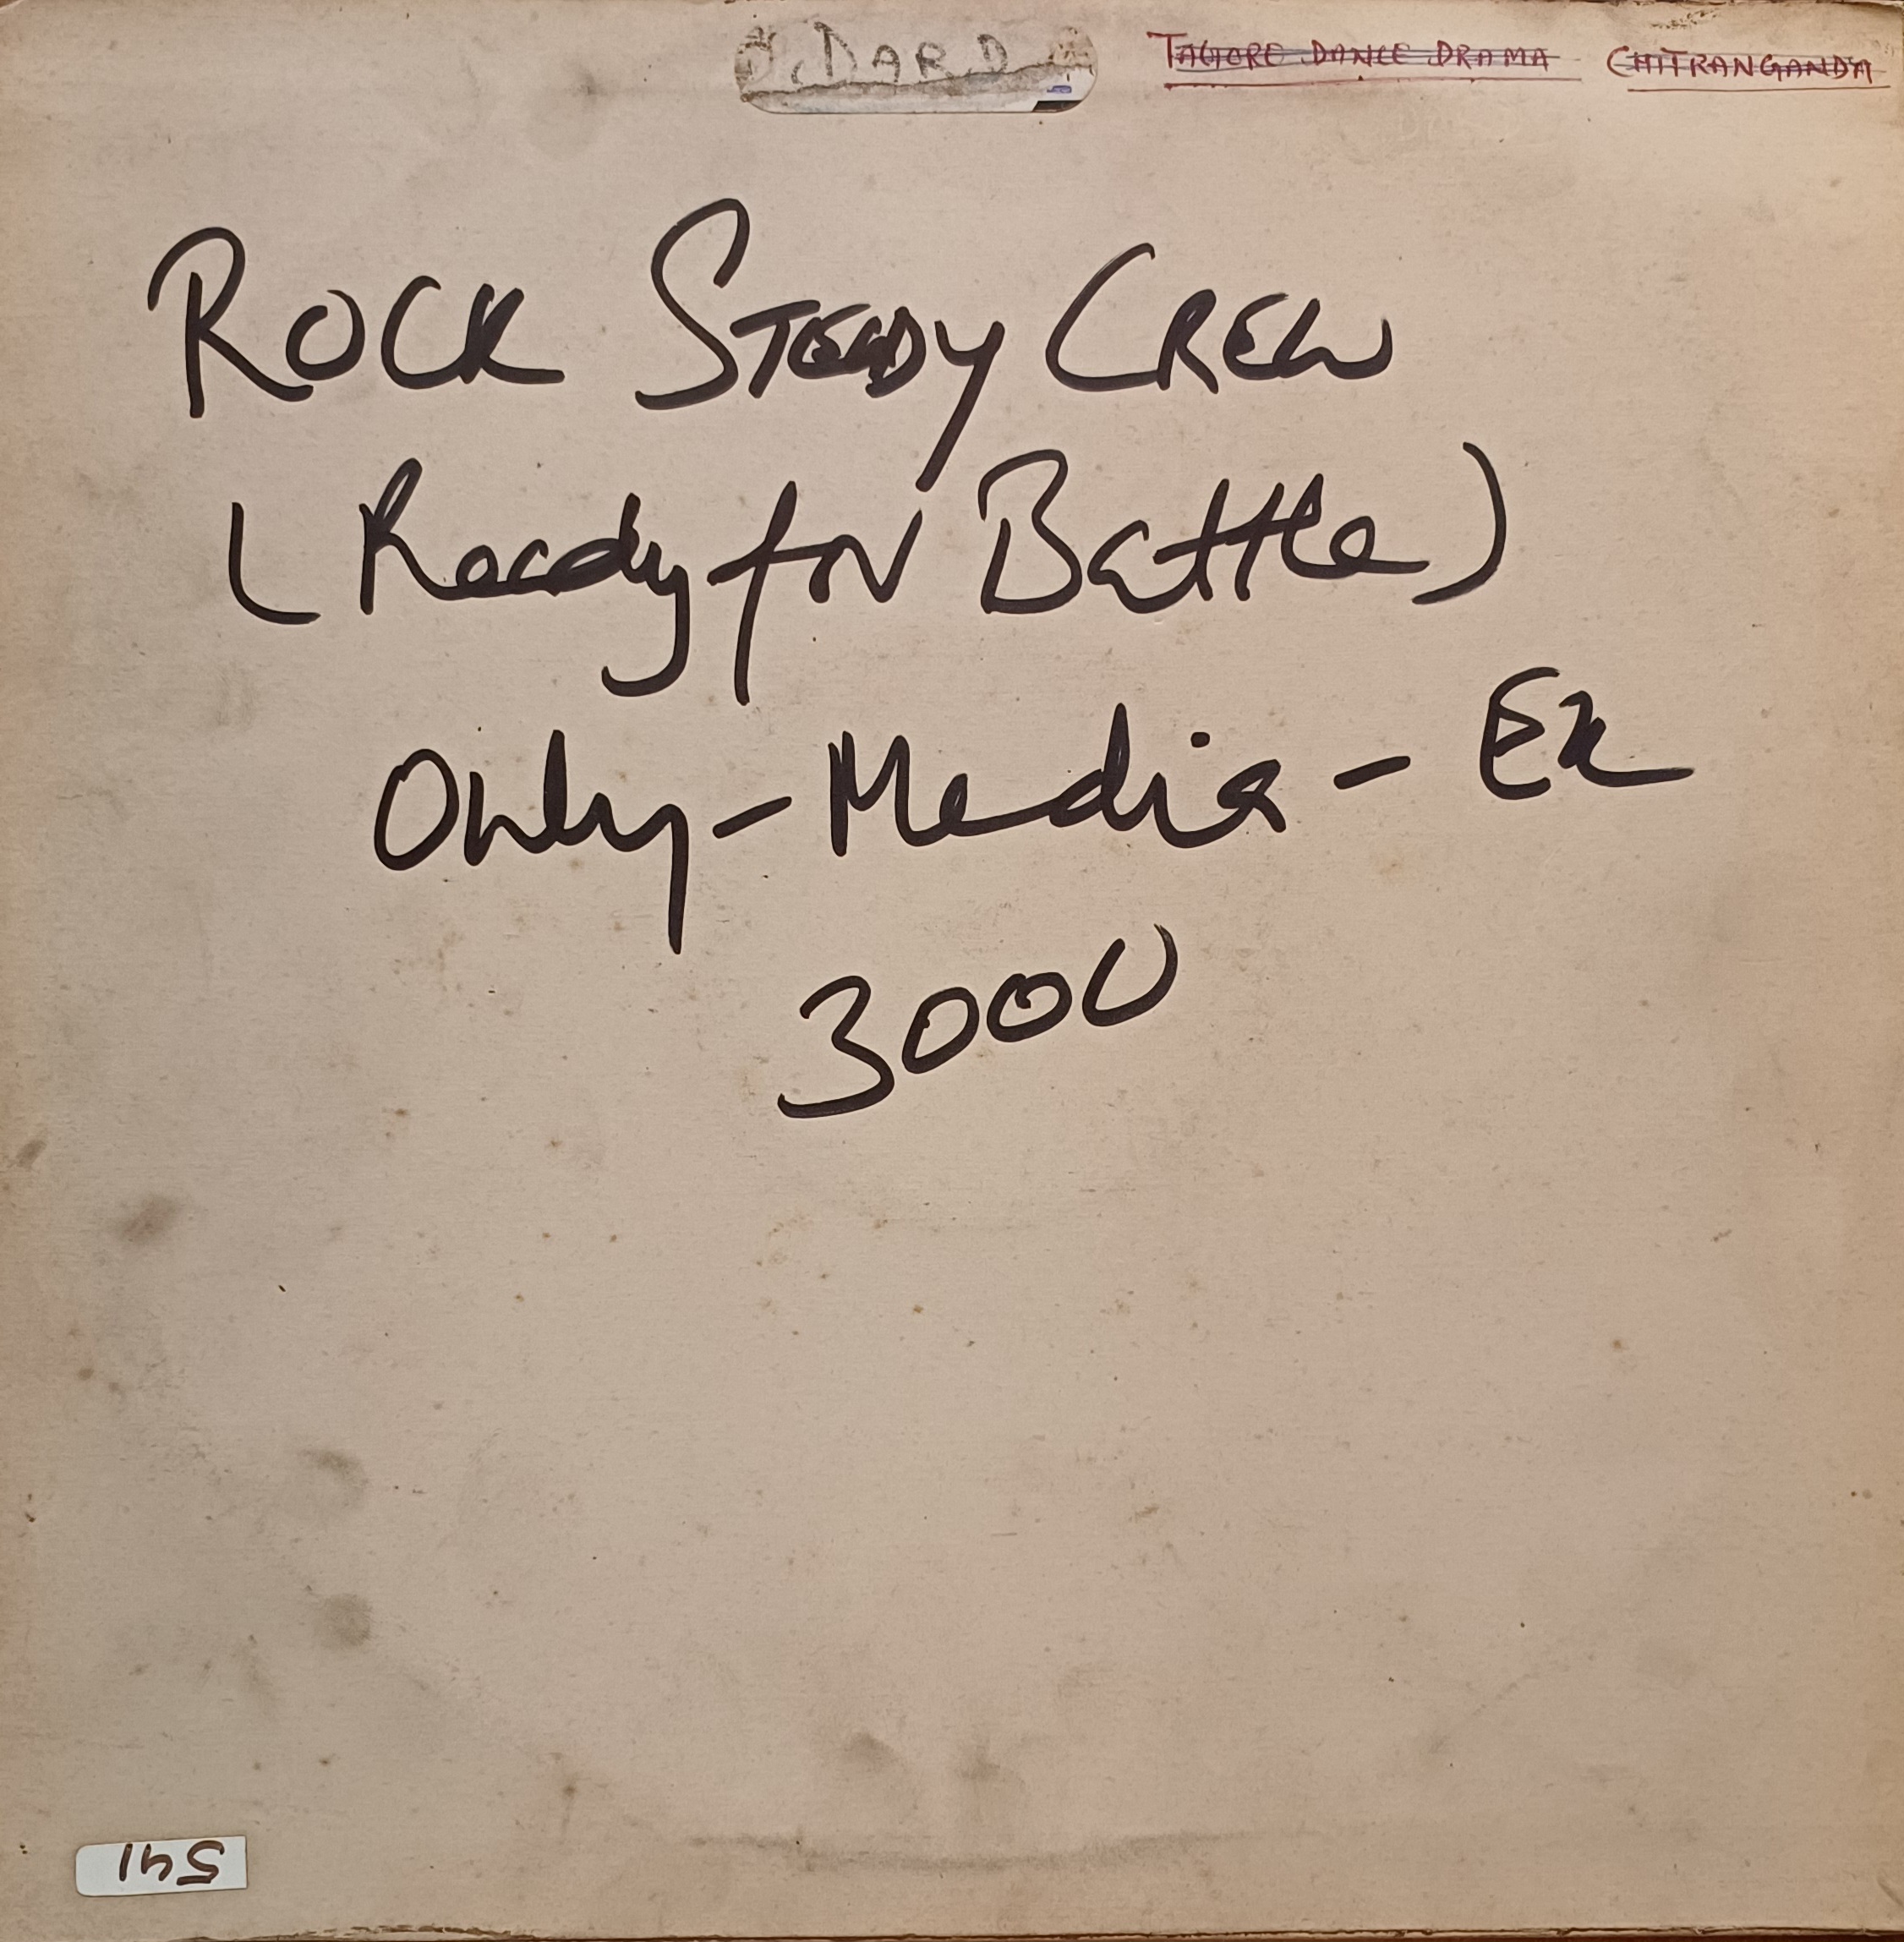 DARD
TAGORE DANCE DRAMA CHITRANGANDA
ROCK STEADY CREW
(Ready for Battle)
Only - Media - Ex
3000
541